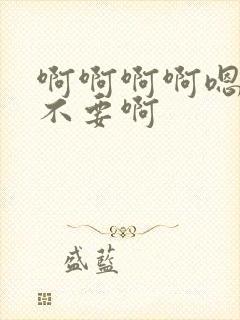 啊啊啊啊嗯
不要啊
盛蓝